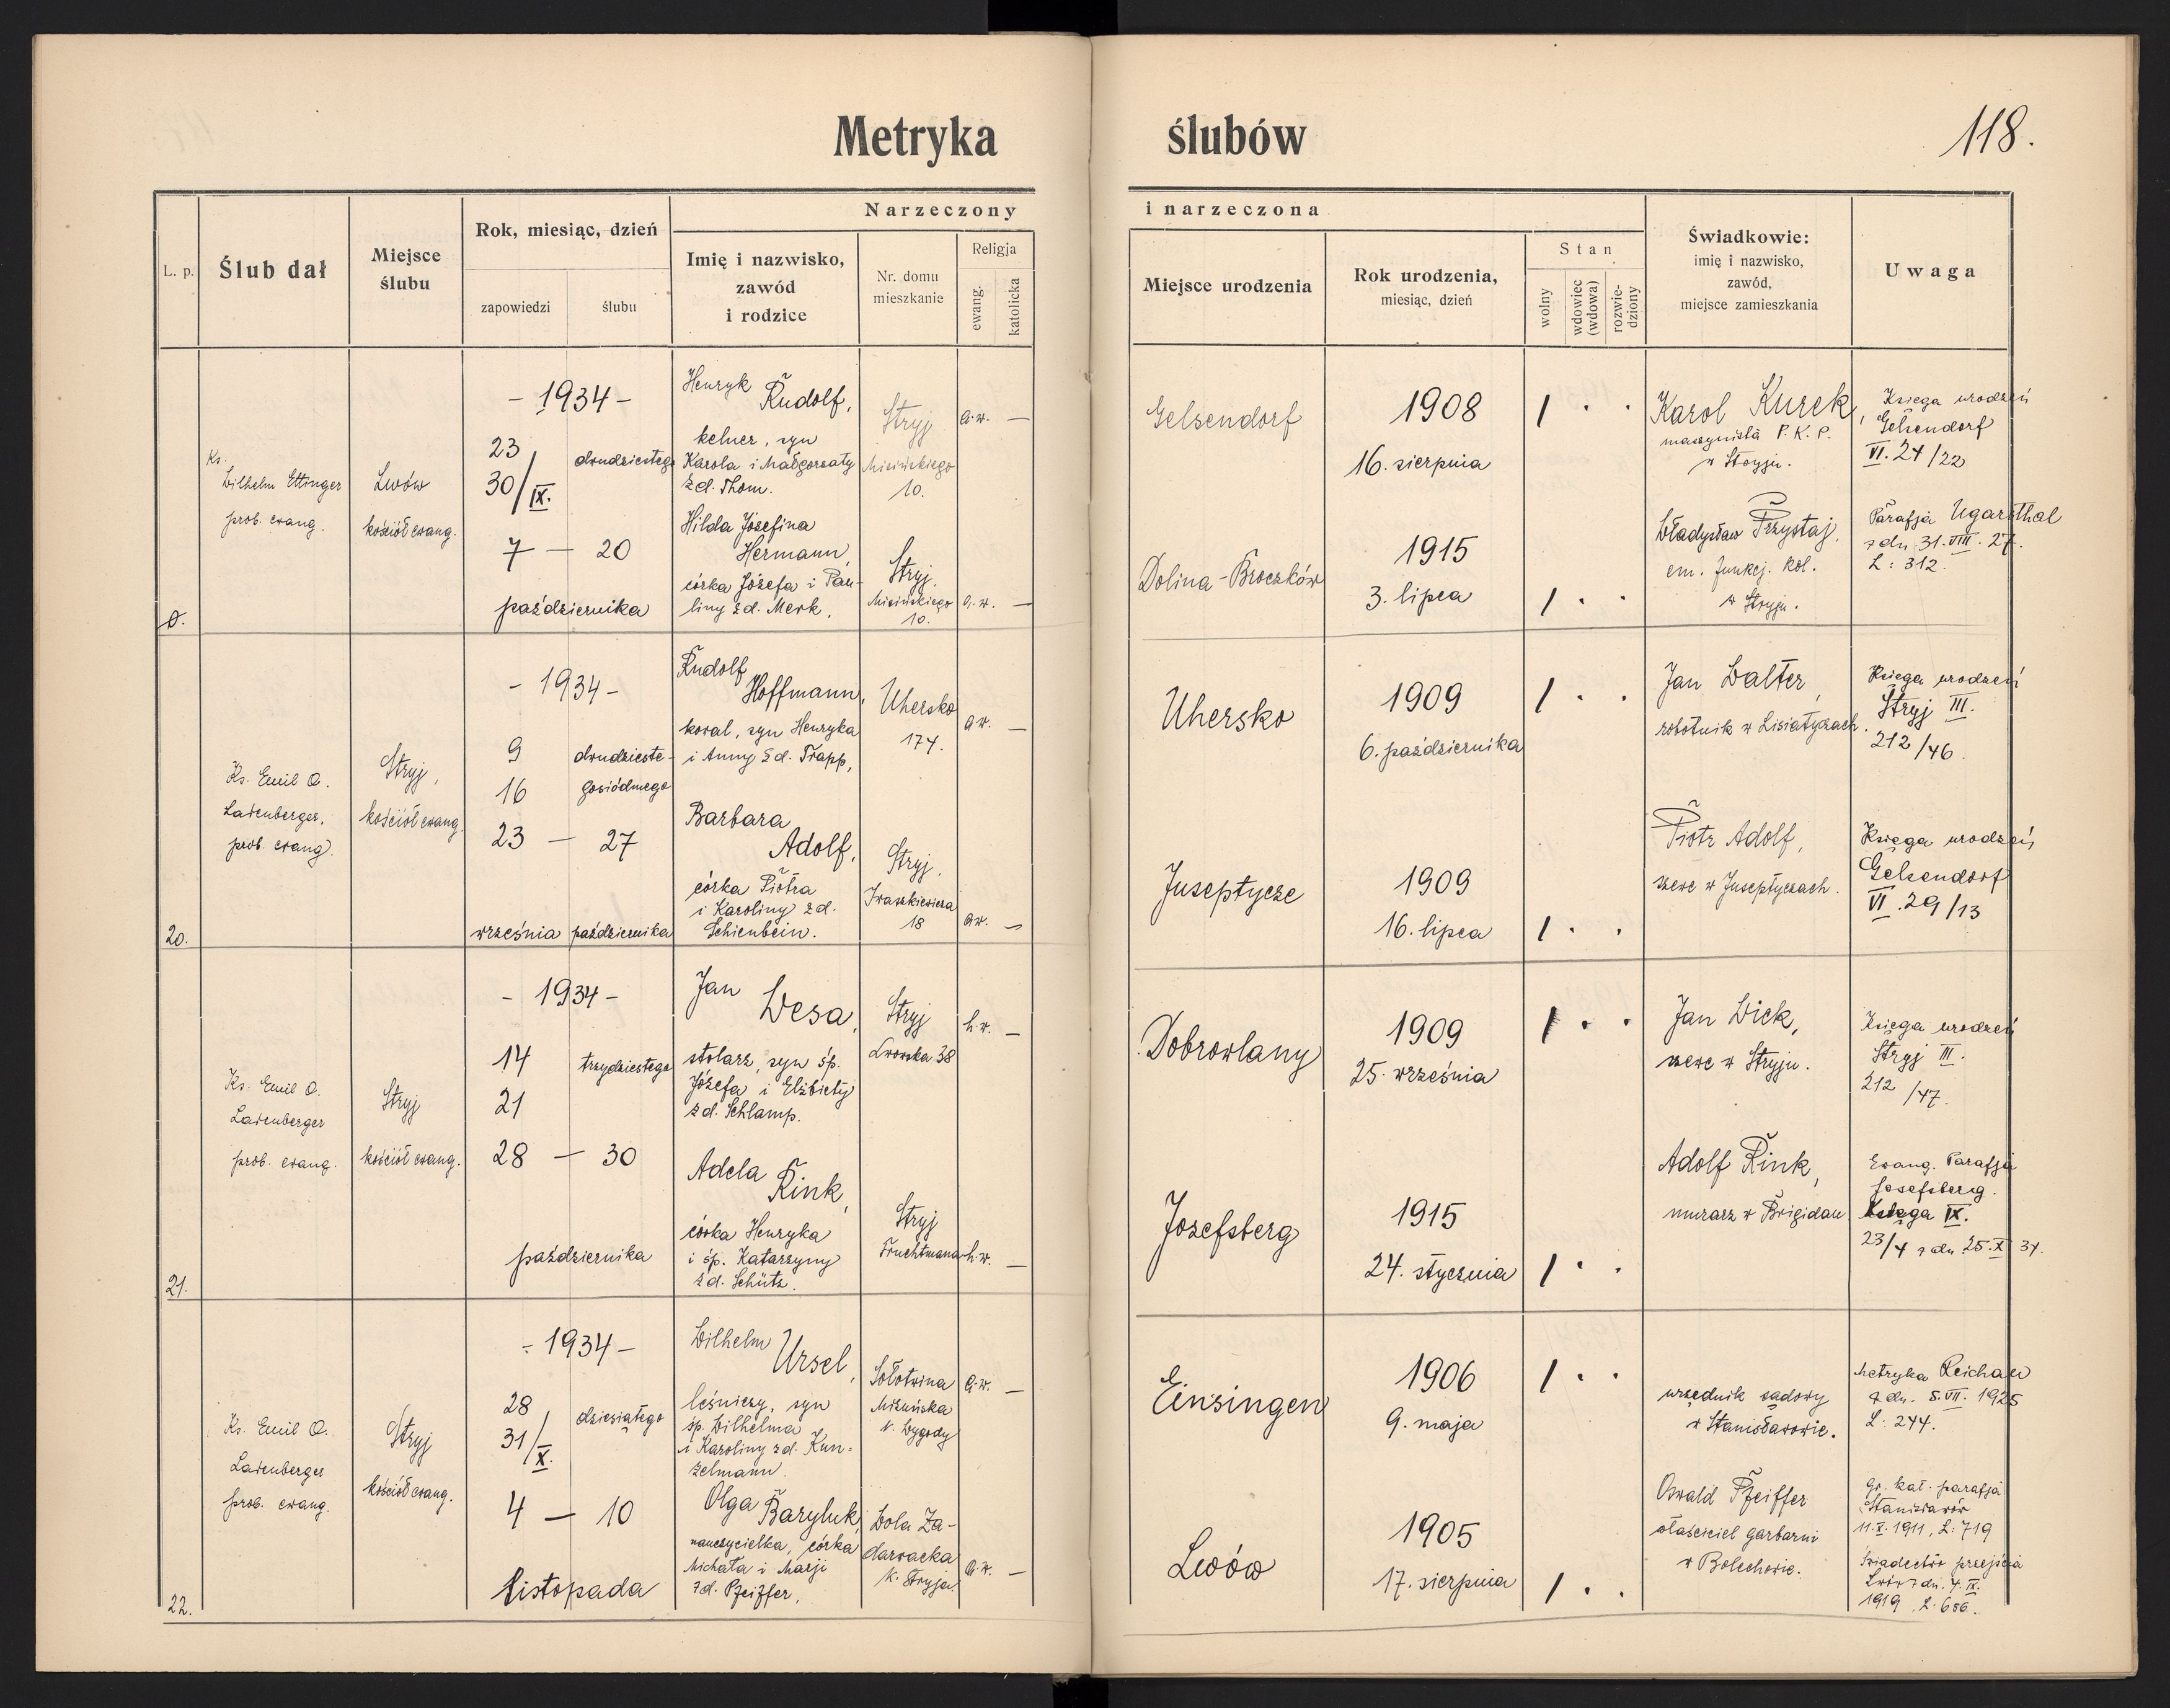 Metryka ślubów
118.
L. p.
Ślub dał
Miejsce
ślubu
Rok, miesiąc, dzień
zapowiedzi
ślubu
Narzeczony i narzeczona
Imię i nazwisko,
zawód
i rodzice
Nr. domu
mieszkanie
Religja
ewang.
katolicka
Miejsce urodzenia
Rok urodzenia,
miesiąc, dzień
Stan
wolny
wdowiec
(wdowa)
rozwie-
dziony
Świadkowie:
imię i nazwisko,
zawód,
miejsce zamieszkania
Uwaga
Ks.
Wilhelm Ettinger
prob. ewang.
Lwów
kościół ewang.
- 1934 -
23
30/IX.
dwudziestego
7 — 20
października
Henryk
Rudolf,
kelner, syn
Karola i Małgorzaty
zd. Thom.
Stryj
Misińskiego
10.
a. w. —
Gelsendorf
1908
16. sierpnia
1 . .
Karol Kurek,
maszynista P. K. P.
w Stryju.
Księga urodzeń
Gelsendorf
VI. 24/22
Hilda Józefina
Hermann,
córka Józefa i Pau-
liny zd. Merk.
Stryj.
Misińskiego
10.
a. w. —
Dolina-Broczków
1915
3. lipca
1 . .
Władysław Przystaj,
em. funkcj. kol.
w Stryju.
Parafja Ugartsthal
z dn. 31. VIII. 27.
L: 312.
20.
Ks. Emil O.
Ladenberger,
prob. ewang.
Stryj,
kościół ewang.
- 1934 -
9
16
23 — 27
dwudzieste-
gosiódmego
września
października
Rudolf
Hoffmann,
kowal, syn Henryka
i Anny zd. Trapp,
Uhersko
174.
a w. —
Uhersko
1909
6. października
1 . .
Jan Walter,
robotnik w Lisiatyczach.
Księga urodzeń
Stryj III.
212/46.
Barbara
Adolf,
córka Piotra
i Karoliny zd.
Schienbein.
Stryj,
Iwaszkiewicza
18
a w. —
Juseptycze
1909
16. lipca
1 . .
Piotr Adolf,
szewc w Juseptyczach.
Księga urodzeń
Gelsendorf
VI. 29/13
21.
Ks. Emil O.
Ladenberger
prob. ewang.
Stryj
kościół ewang.
- 1934 -
14
21
28 — 30
trzydziestego
października
Jan
Wesa,
stolarz, syn śp.
Józefa i Elżbiety
zd. Schlamp.
Stryj
Lwowska 38
h. w. —
Dobrowlany
1909
25. września
1 . .
Jan Wick,
szewc w Stryju.
Księga urodzeń
Stryj III.
212/47.
Adela
Rink,
córka Henryka
i śp. Katarzyny
zd. Schütz.
Stryj
Fruchtmana
h. w. —
Josefsberg
1915
24. stycznia
1 . .
Adolf Rink,
murarz w Brigidau
Ewang. Parafja
Josefsberg.
Księga IX.
23/4 z dn. 25. X 34.
22.
Ks. Emil O.
Ladenberger
prob. ewang.
Stryj
kościół ewang.
- 1934 -
28
31/X.
dziesiątego
4 — 10
listopada
Wilhelm
Ursel,
leśniczy, syn
śp. Wilhelma
i Karoliny zd. Kun-
zelmann.
Sołotwina
Mizuńska
k. Wygody
a. w. —
Einsingen
1906
9. maja
1 . .
urzędnik sądowy
w Stanisławowie.
Metryka Reichau
z dn. 5. VII. 1925
L: 244.
Olga
Baryluk,
nauczycielka, córka
Michała i Marji
zd. Pfeiffer,
Wola Za-
darwacka
k. Stryja
a. w. —
Lwów
1905
17. sierpnia
1 . .
Oswald Pfeiffer
właściciel garbarni
w Bolechowie.
Gr. kat. parafja
Stanisławów
11. X. 1911, L: 719
Świadectwo przejścia
Lwów z dn. 4. IX.
1919, L: 686.